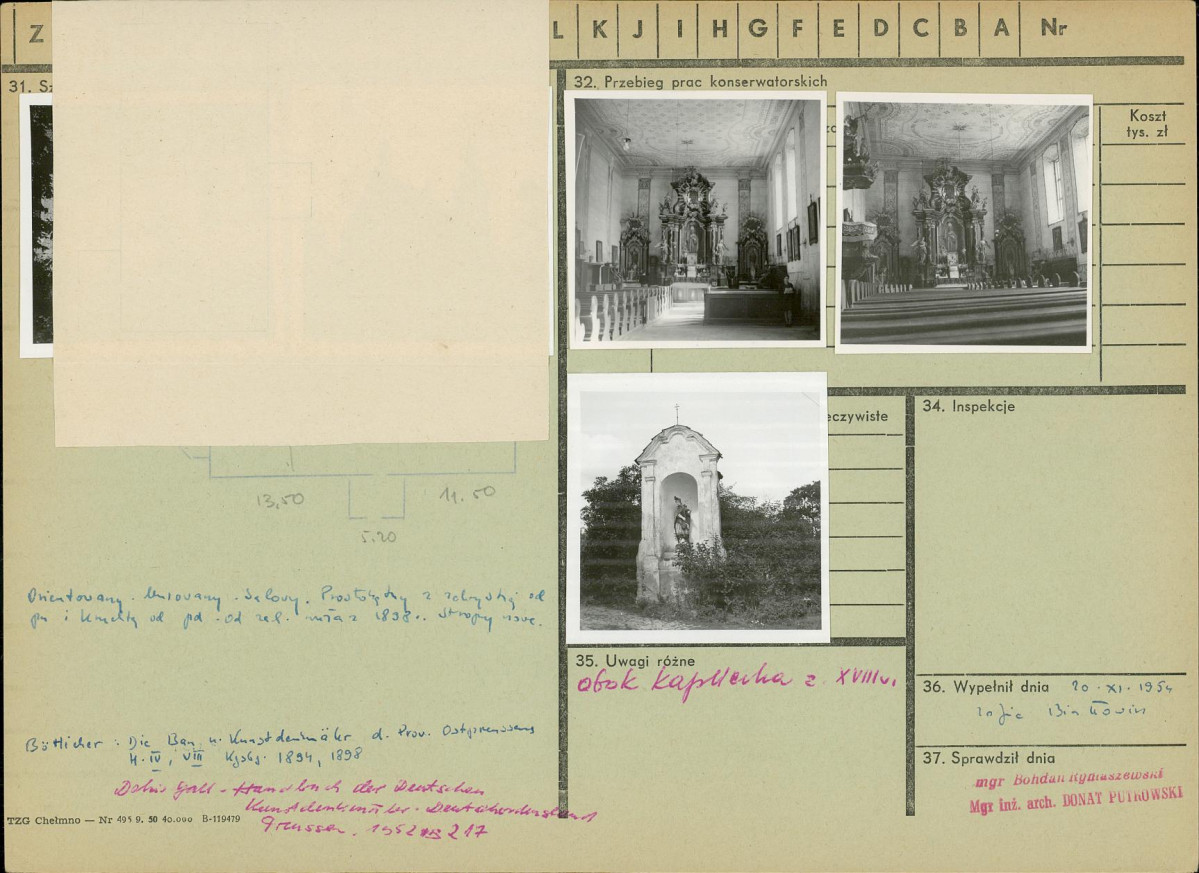 Z L K J I H G F E D C B A Nr
31. Sz
32. Przebieg prac konserwatorskich
Koszt
tys. zł
eczywiste
34. Inspekcje
13,50
11.50
5.20
Orientowany. Murowany. Salowy. Prostokątny z zakrystią od
pn i kruchtą od pd. od 1898 r. Stropy nowe.
35. Uwagi różne
obok kapliczka z XVIII w.
36. Wypełnił dnia 20.XI.1954
Zofia
37. Sprawdził dnia
mgr Bohdan Rymaszewski
Mgr inż. arch. DONAT PUTKOWSKI
Bötticher: Die Bau u. Kunstdenkmäler d. Prov. Ostpreussens
H. IV, VIII Kgsbg. 1894, 1898
Dehio Gall - Handbuch der Deutschen
Kunstdenkmäler - Deutschordensland
Preussen. 1952 217
TZG Chełmno — Nr 495 9. 50 40.000 B-119479